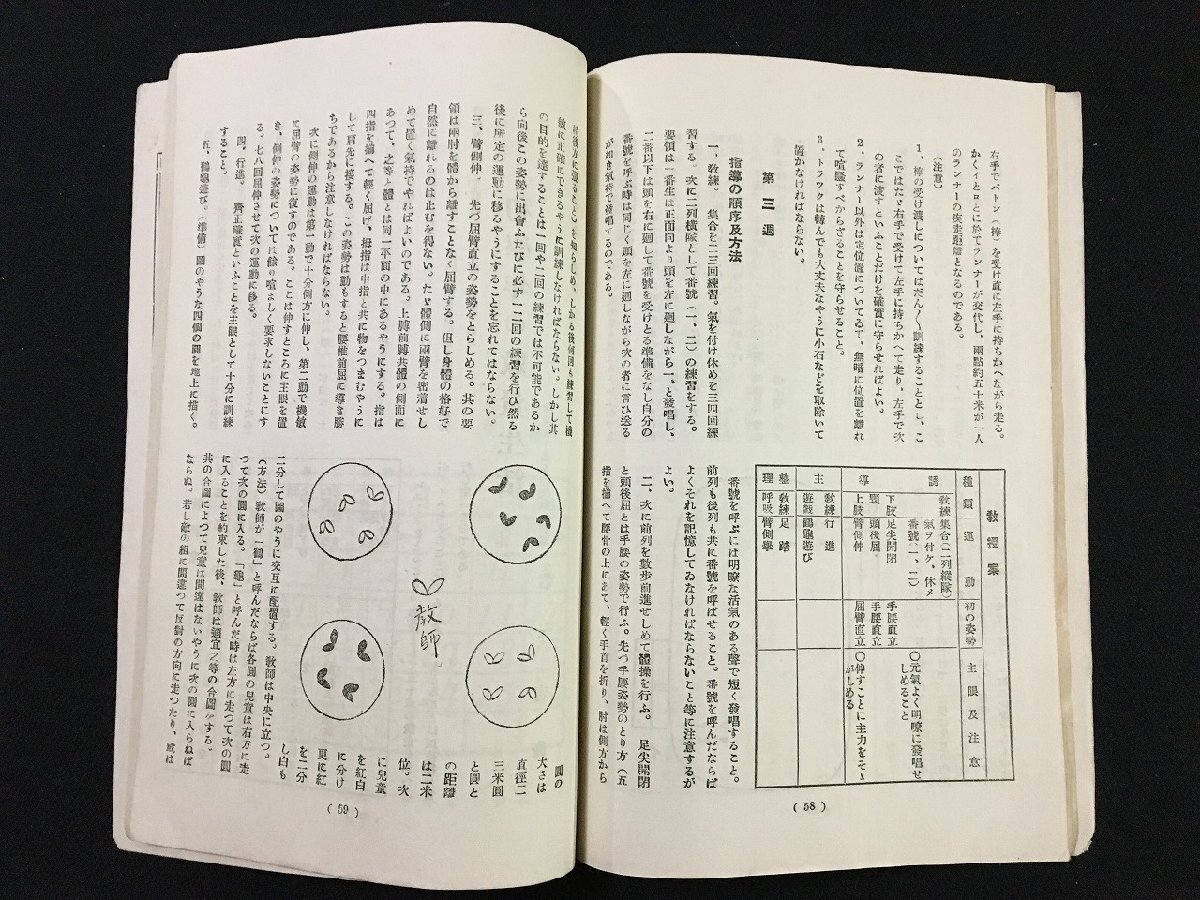 右手でバトン(棒)を受け直に左手に持ちかへながら走る。
かくイとロとに於てランナーが交代し、兩點約五十米が一人
のランナーの疾走距離となるのである。
(注意)
1、棒の受け渡しについてはだん〳〵訓練することとし、こ
こではたゞ右手で受けて左手に持ちかへて走り、左手で次
の者に渡すといふことだけを確實に守らせればよい。
2、ランナー以外は定位置についてゐて、無暗に位置を離れ
て喧騷すべからざることを守らせること。
3、トラックは轉んでも大丈夫なやうに小石などを取除いて
置かなければならない。
第三週
指導の順序及方法
一、敎練。 集合を二三回練習。氣を付け休めを三四回練
習する。次に二列橫隊として番號(一、二)の練習をする。
要領は一番生は正面同より頭を左に廻しながら一、と發唱し、
二番以下は頭を右に廻して番號を受けとる準備をなし自分の
番號を呼ぶ時は同じく頭を左に廻しながら次の者に言ひ送る
が如き氣持で發唱するのである。
敎程案
種類
運動
初の姿勢
主眼及注意
誘導
敎練集合(二列縱隊)
氣ヲ付ケ、休メ
番號(一、二)
下肢足尖開閉
頸 頭後屈。
上肢臂側伸
手腰直立
手腰直立
屈臂直立
〇元氣よく明瞭に發唱せ
しめること
〇伸すことに主力をそゝ
がしめる
主
敎練行進
遊戲鶴龜遊び
整理
敎練足踏
呼吸臂側擧
番號を呼ぶには明瞭な活氣のある聲で短く發唱すること。
前列も後列も共に番號を呼ばせること。番號を呼んだならば
よくそれを記憶してゐなければならないこと等に注意するが
よい。
二、次に前列を數步前進せしめて體操を行ふ。 足尖開閉
と頭後屈とは手腰の姿勢で行ふ。先づ手腰姿勢のとり方(五
指を揃へて腰骨の上に支て、輕く手首を折り、肘は側方から
(58)
敏に正確にできるやうに訓練しなければならない。しかし其
の目的を達することは一回や二回の練習では不可能であるか
ら向後この姿勢に出會ふたびに必ず一二回の練習を行ひ然る
後に所定の運動に移るやうにすることを忘れてはならない。
三、臂側伸。 先づ屈臂直立の姿勢をとらしめる。其の要
領は兩肘を體から離すことなく屈臂する。但し身體の恰好で
自然に離れるのは止むを得ない。たゞ體側に兩臂を密着せし
めて置く氣持でやればよいのである。上膊前膊共體の側面に
あつて、之等と體とは同一平面の中にあるやうにする。指は
四指を揃へて輕く屈げ、拇指は中指と共に物をつまむやうに
して肩先に接する。この姿勢は動もすると腰椎前屈に導き勝
ちであるから注意しなければならない。
次に側伸の運動は第一動で十分側方に伸し、第二動で機敏
に屈臂の姿勢に復すのである。ここは伸すところに主眼を置
き、側伸の姿勢については餘り喧ましく要求しないことにす
る。七八回屈伸させて次の運動に移る。
四、行進。 齊正確實といふことを主眼として十分に訓練
すること。
五、鶴龜遊び。(準備)圖のやうな四個の圓を地上に描く。
敎師
圓の
大さは
直徑二
三米圓
と圓と
の距離
は二米
位。次
に兒童
を紅白
に分け
更に紅
を二分
し白も
二分して圖のやうに交互に配置する。敎師は中央に立つ。
(方法)敎師が「鶴」と呼んだならば各圓の兒童は右方に走
つて次の圓に入る。「龜」と呼んだ時は左方に走つて次の圓
に入ることを約束した後、敎師は適宜之等の合圖をする。
其の合圖によつて兒童は間違はないやうに次の圓に入らねば
ならぬ。若し敵の組に間違つて反對の方向に走つたり、或は
(59)